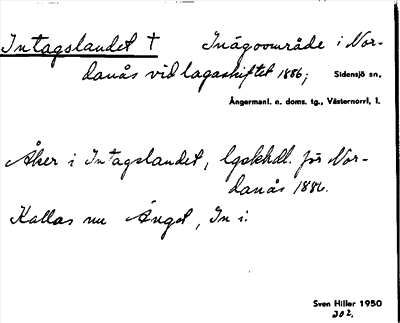 Intagslandet † Inägoområde i Nor-
danås vid lagaskiftet 1886; Sidensjö sn,
Ångermanl. n. doms. tg., Västernorrl. l.
Åker i Intagslandet, lgskhdl. för Nor-
danås 1886.
Kallas nu Änget, In i.
Sven Hiller 1950
202.